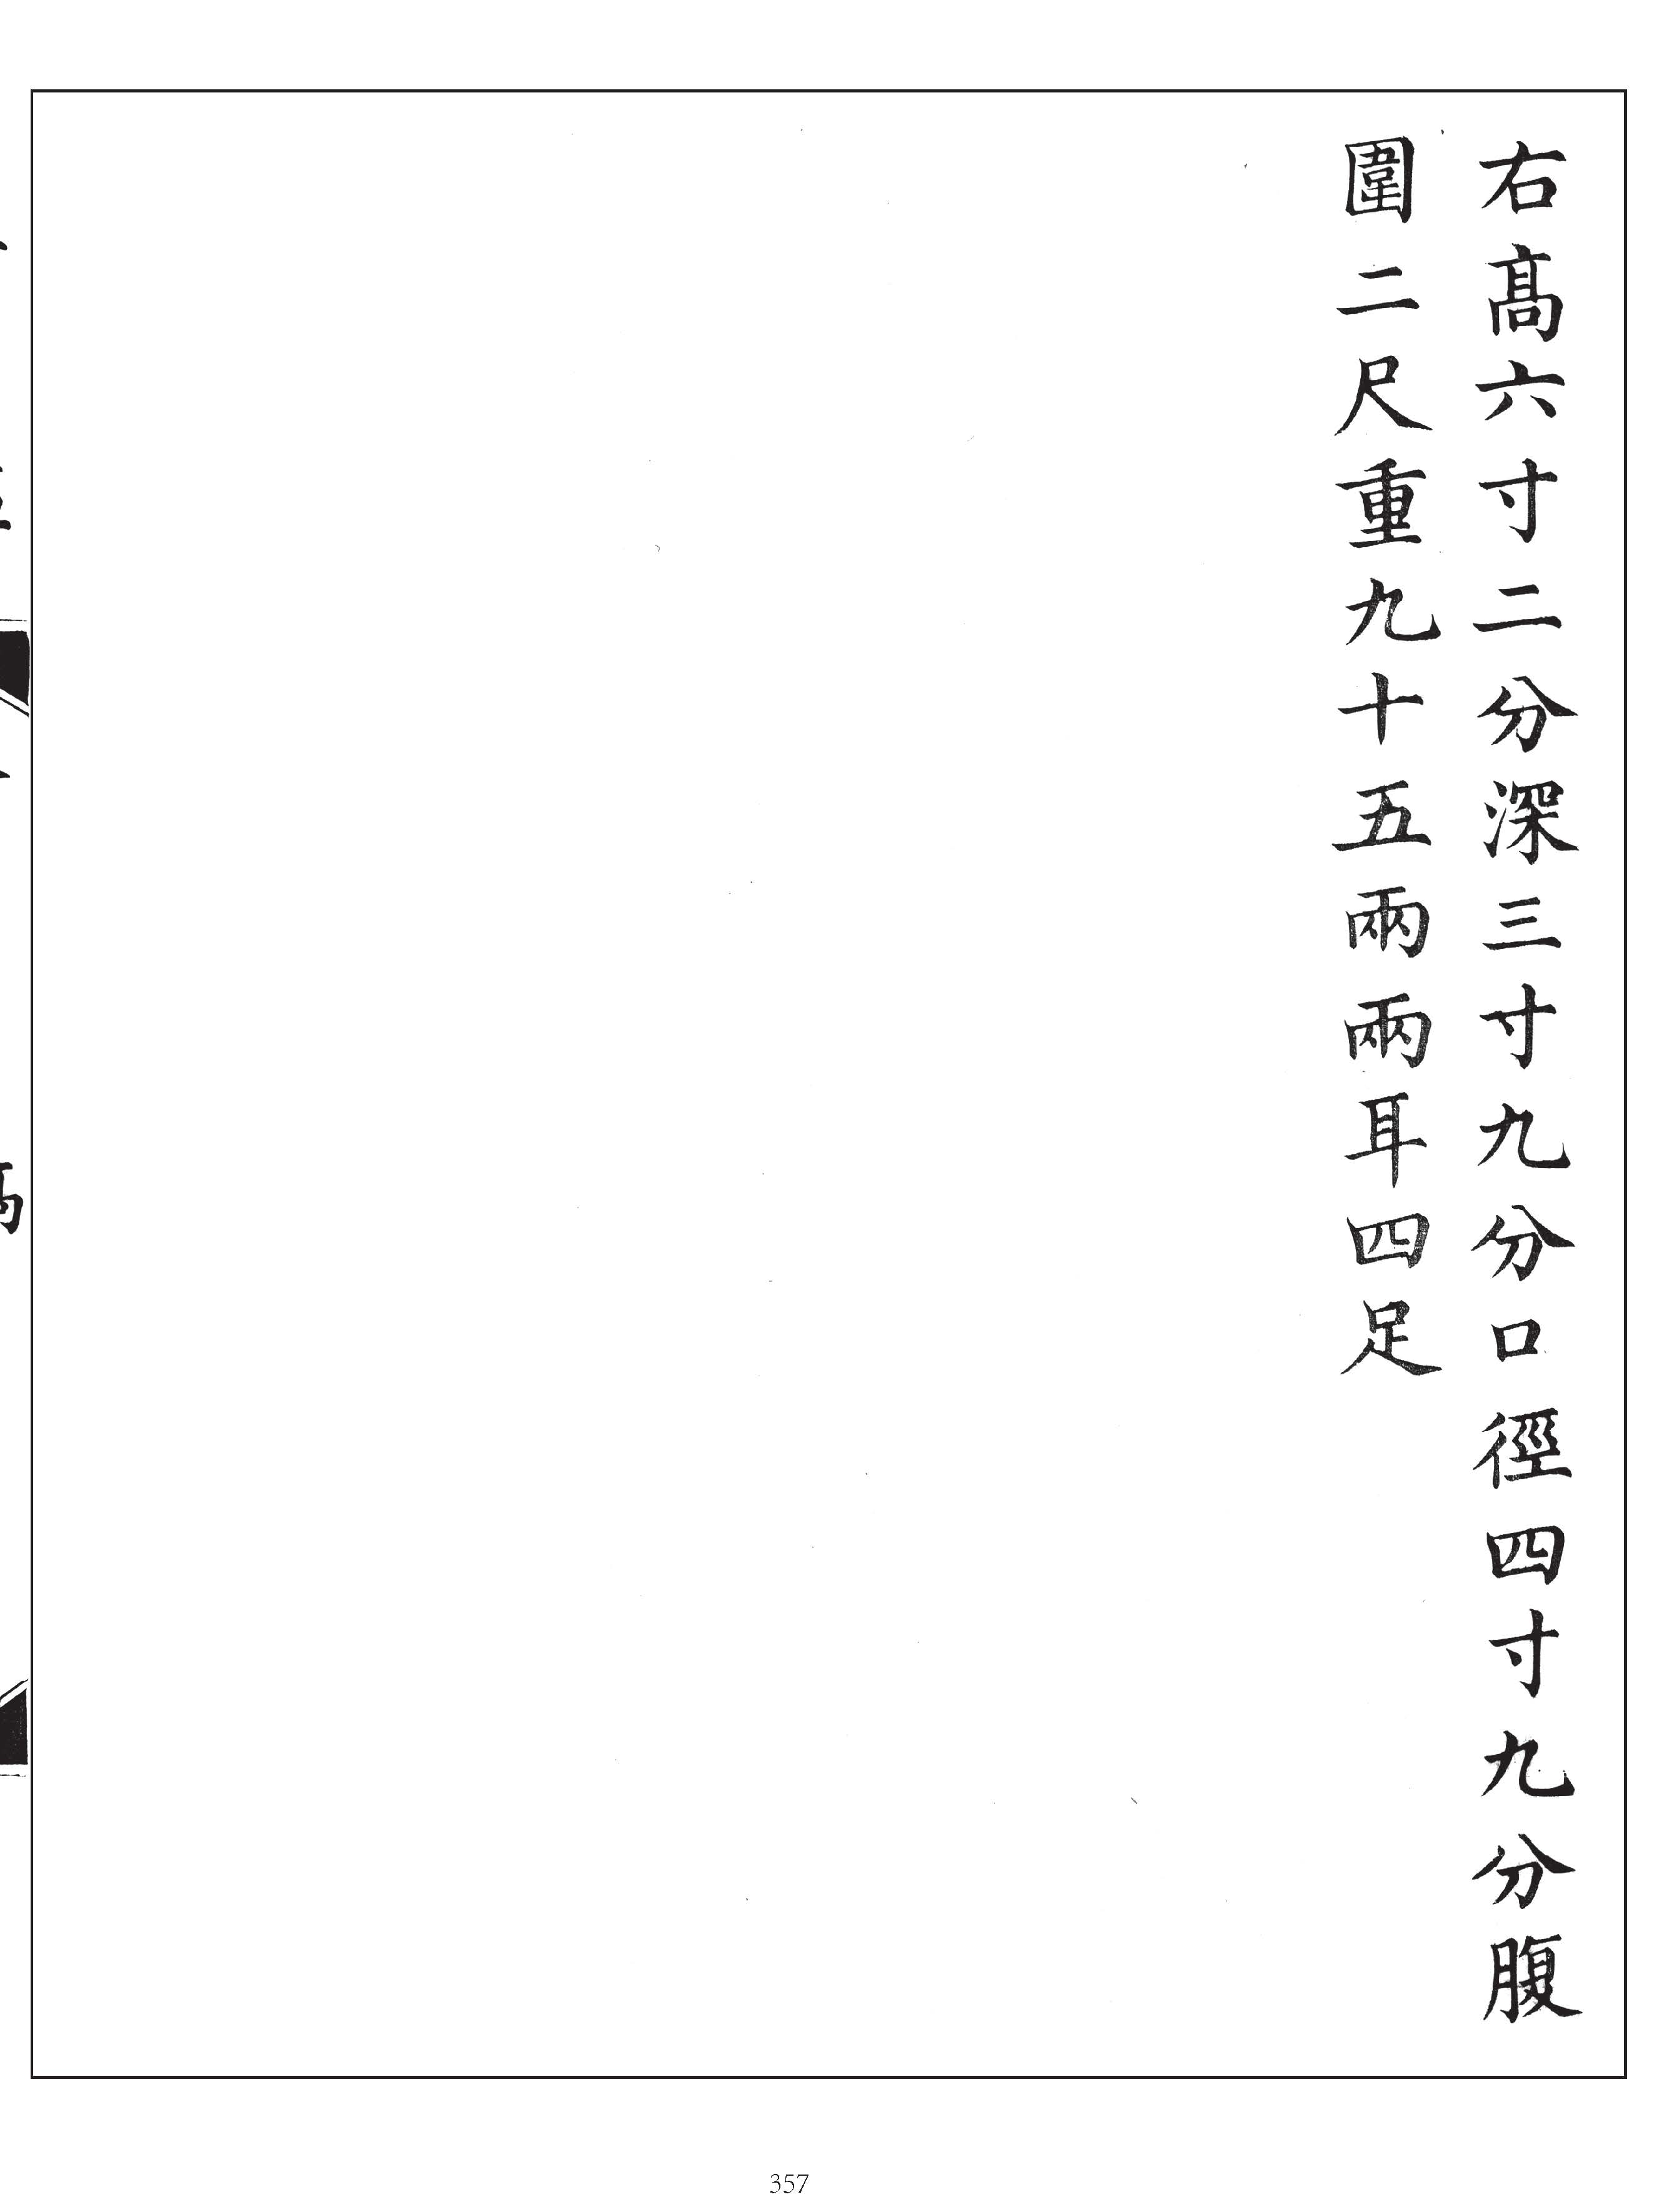 右高六寸二分深三寸九分口徑四寸九分腹
圍二尺重九十五兩兩耳四足
357